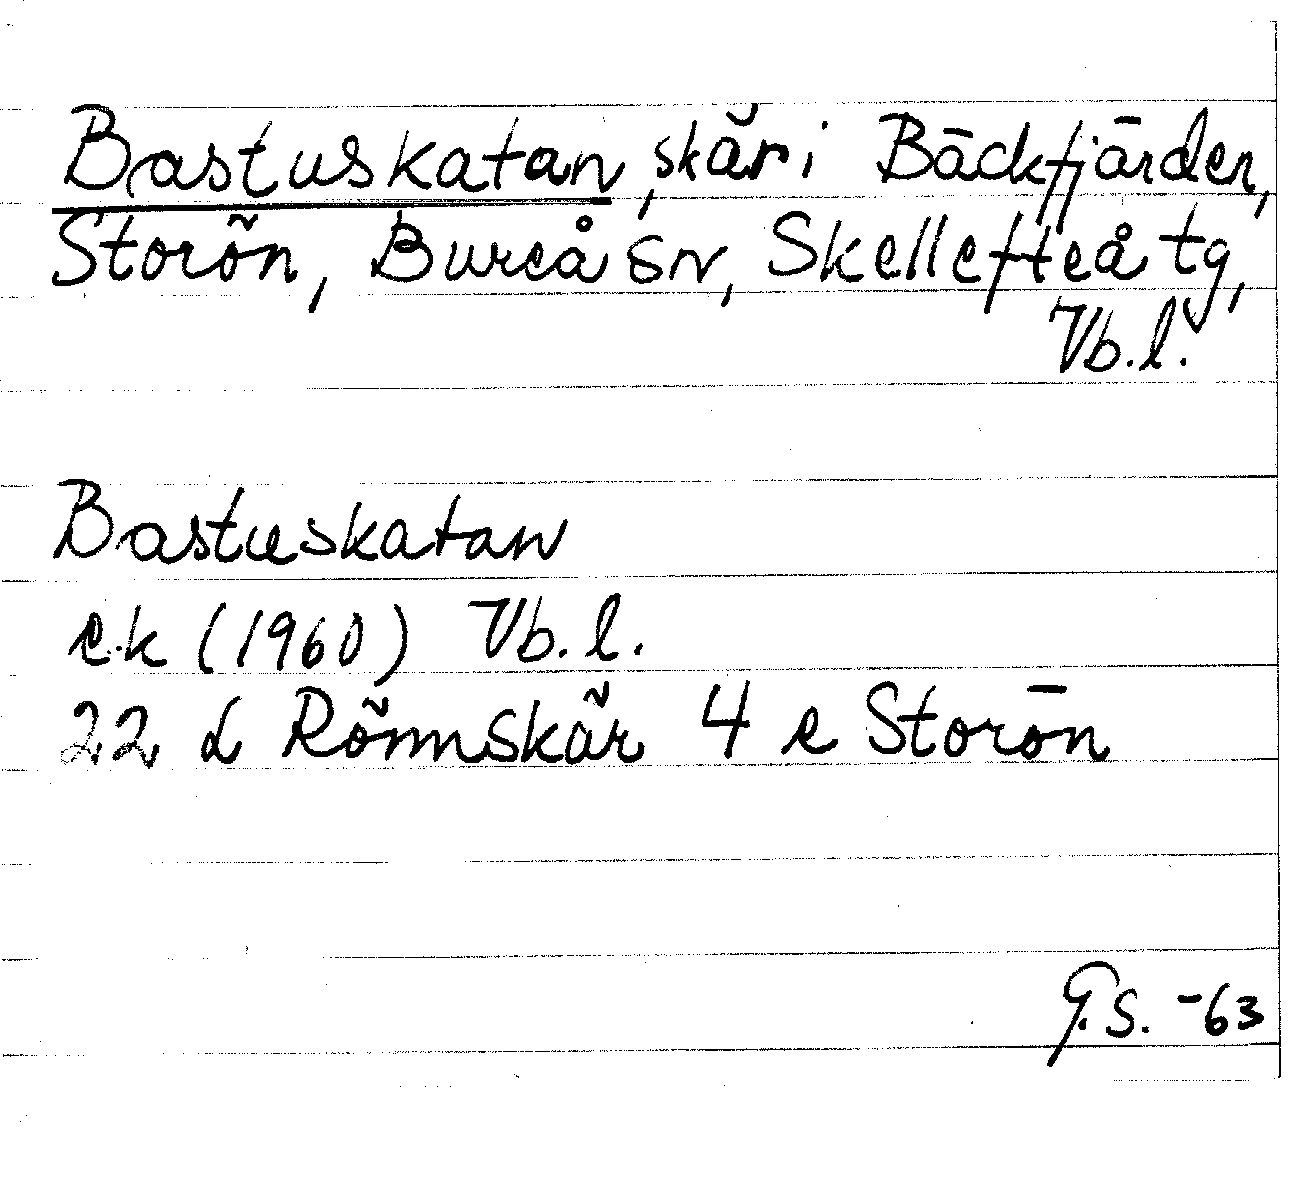 Bastuskatan, skär i Bäckfjärden,
Storön, Bureå sn, Skellefteå tg,
Vb.l.
Bastuskatan
e.k (1960) Vb.l.
22 L Rönnskär 4 e Storön
G.S. -63